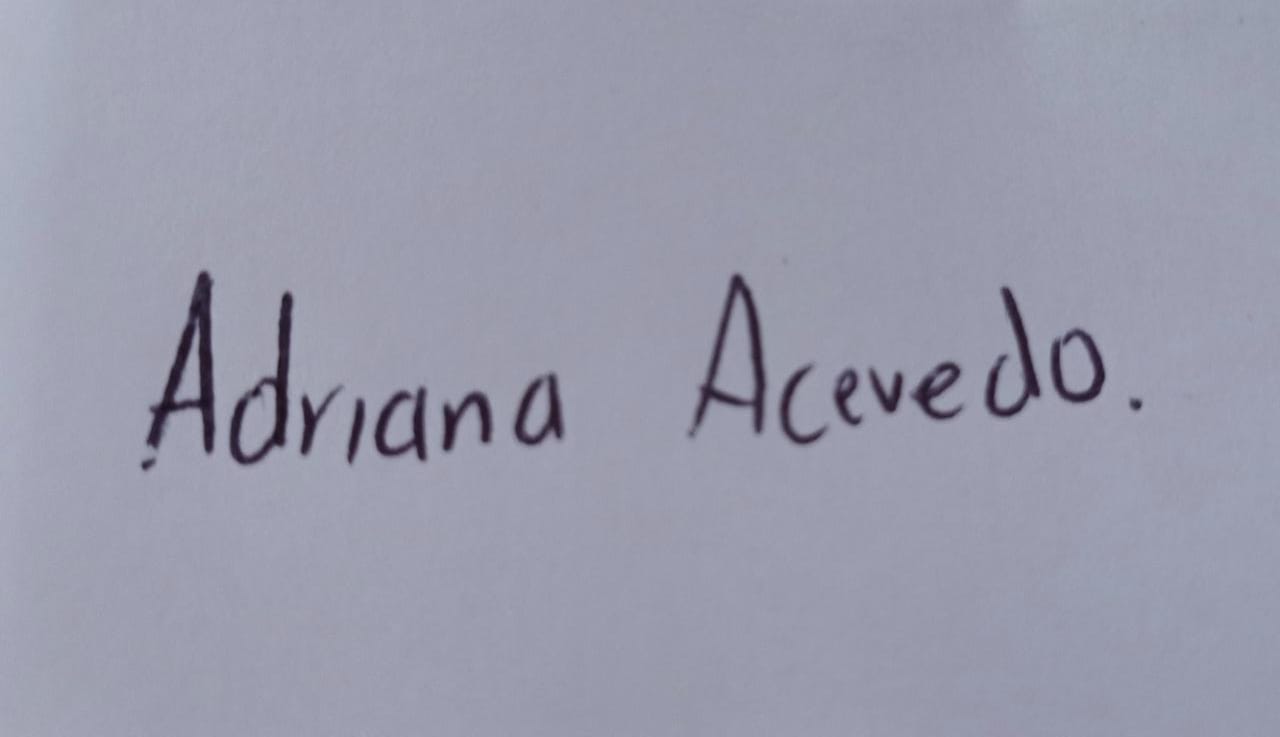 Adriana Acevedo.